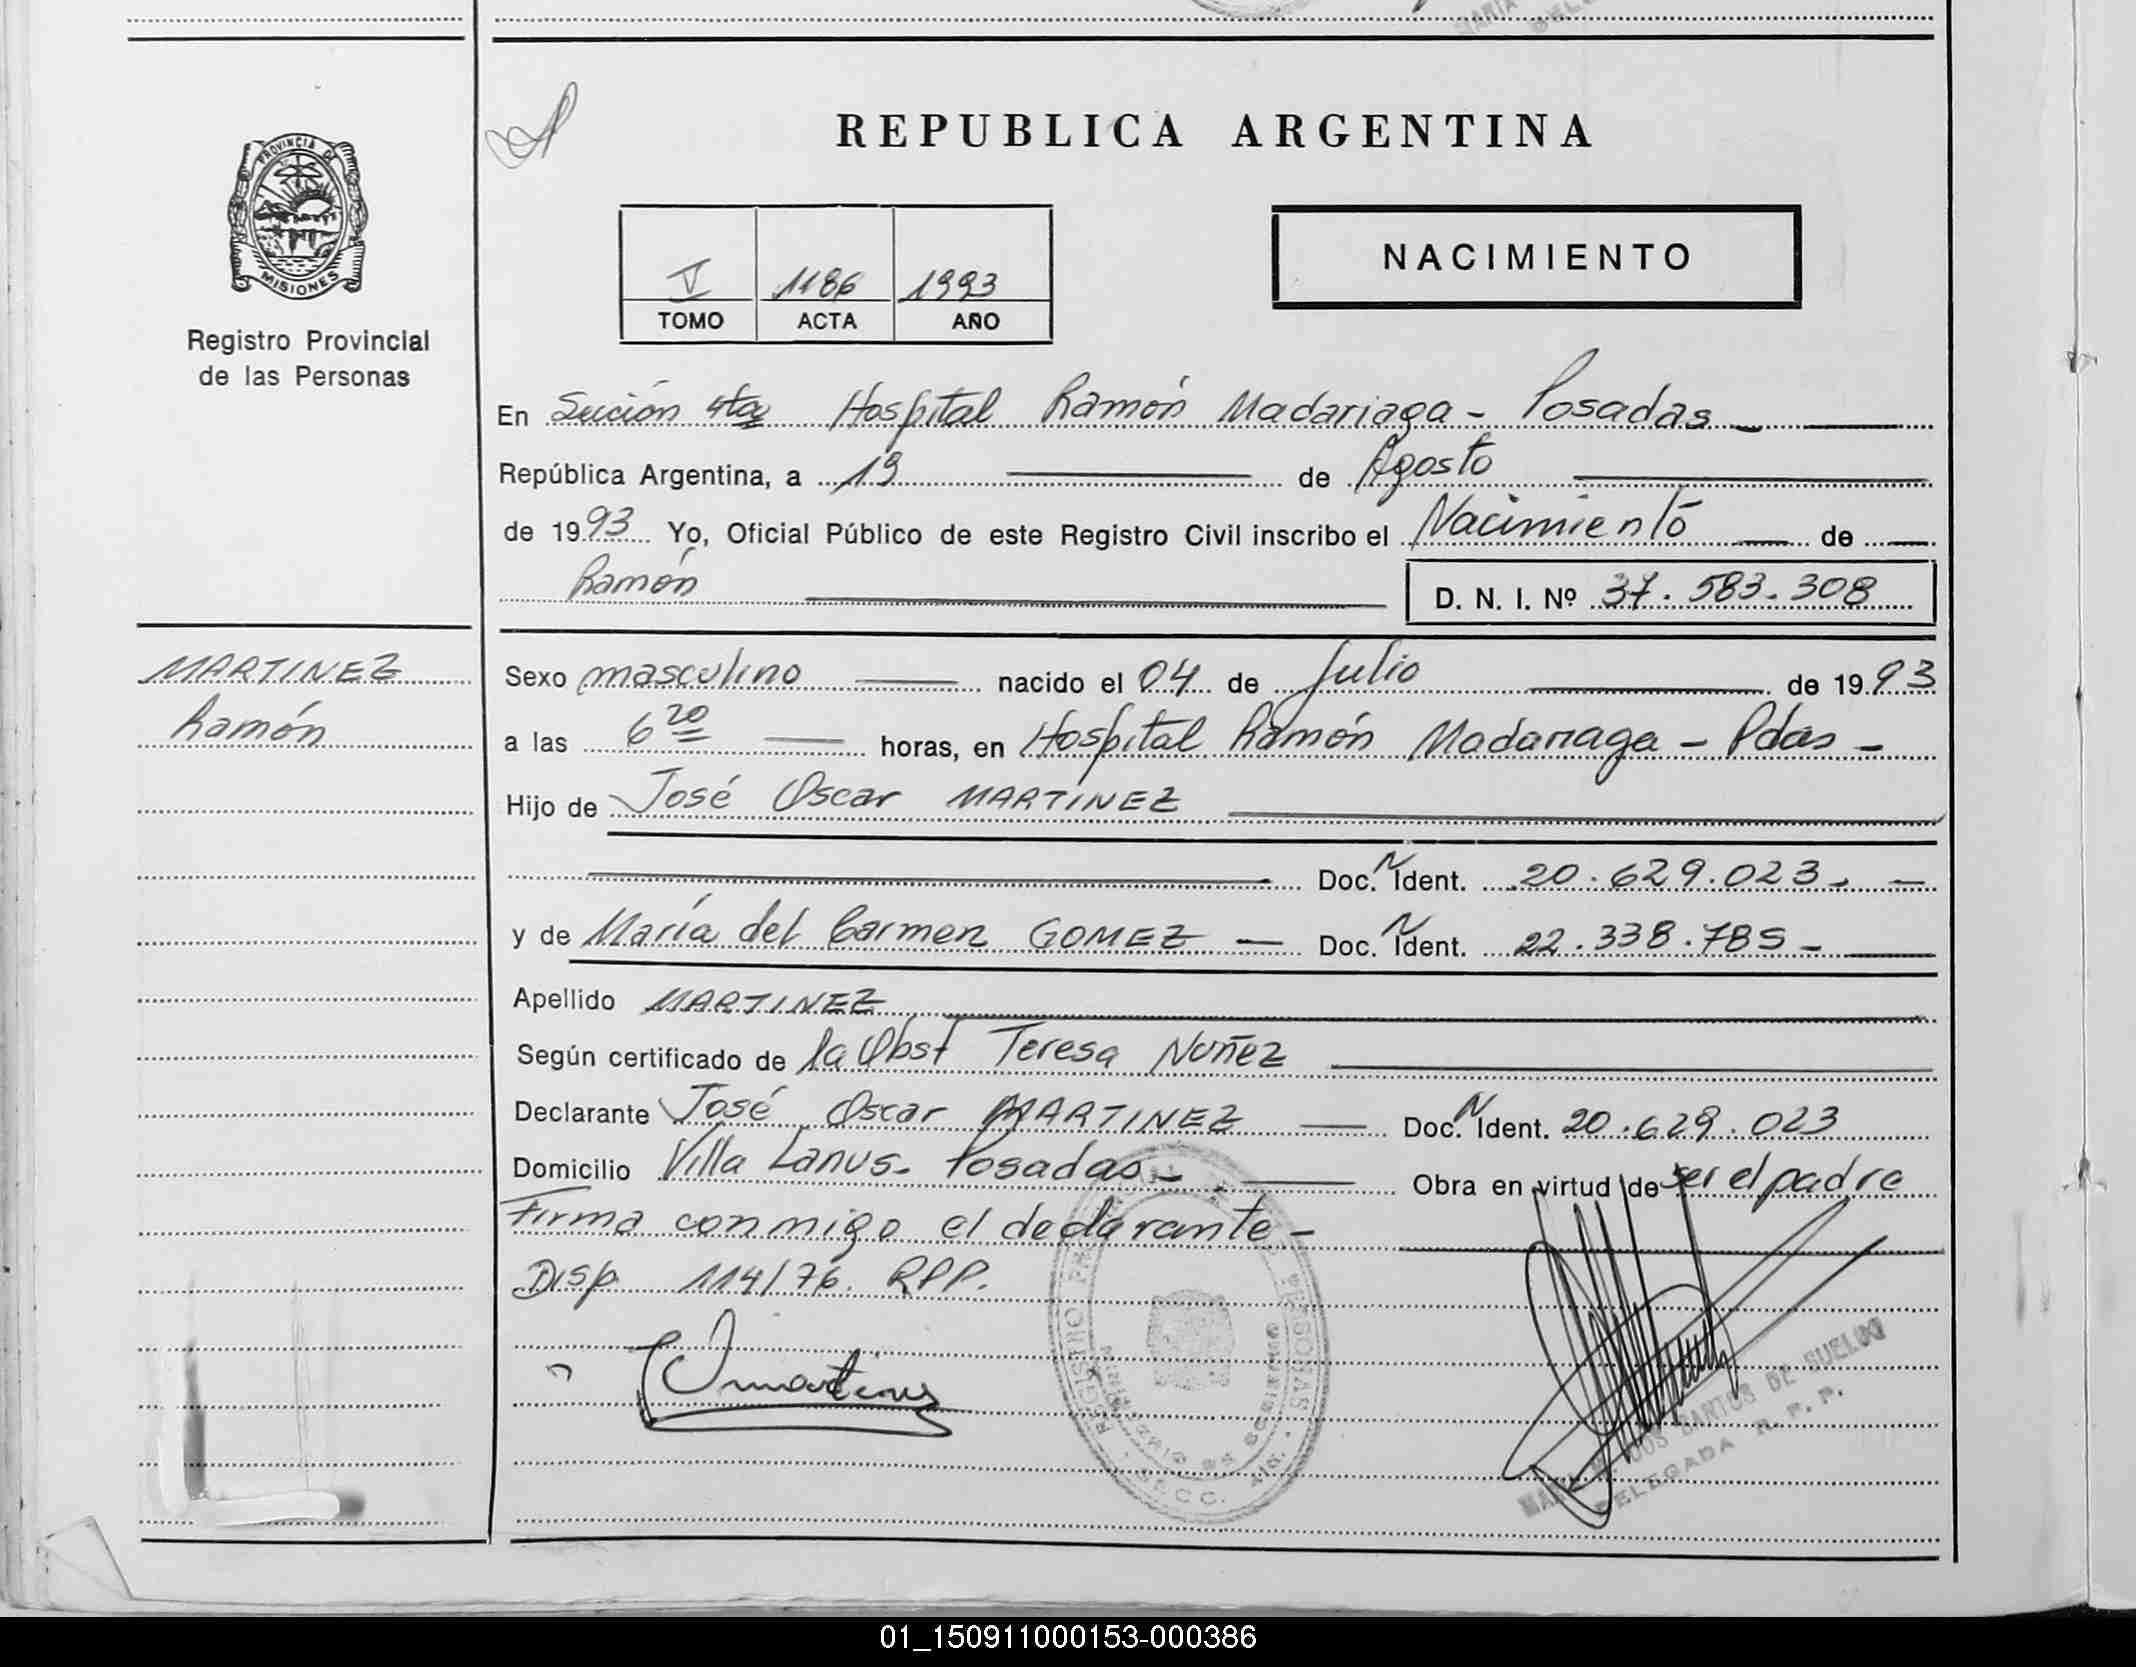 REPUBLICA ARGENTINA
PROVINCIA DE
MISIONES
Registro Provincial
de las Personas
V 1186 1993
TOMO ACTA AÑO
NACIMIENTO
En Sección 4ta Hospital Ramón Madariaga - Posadas
República Argentina, a 19 de Agosto
de 1993 Yo, Oficial Público de este Registro Civil inscribo el Nacimiento de
Ramón D. N. I. Nº 37.583.308
MARTINEZ
Ramón
Sexo masculino nacido el 04 de Julio de 1993
a las 6 20 horas, en Hospital Ramón Madariaga - Pdas -
Hijo de José Oscar MARTINEZ
Doc. N Ident. 20.629.023.
y de María del Carmen GOMEZ Doc. N Ident. 22.338.785
Apellido MARTINEZ
Según certificado de la Obst Teresa Nuñez
Declarante José Oscar MARTINEZ Doc. N Ident. 20.629.023
Domicilio Villa Lanus. Posadas Obra en virtud de ser el padre
Firma conmigo el declarante -
Disp. 114/76. RPP.
REGISTRO PERSONAS
DOS SANTOS DE
DELEGADA R. P. P.
01_150911000153-000386